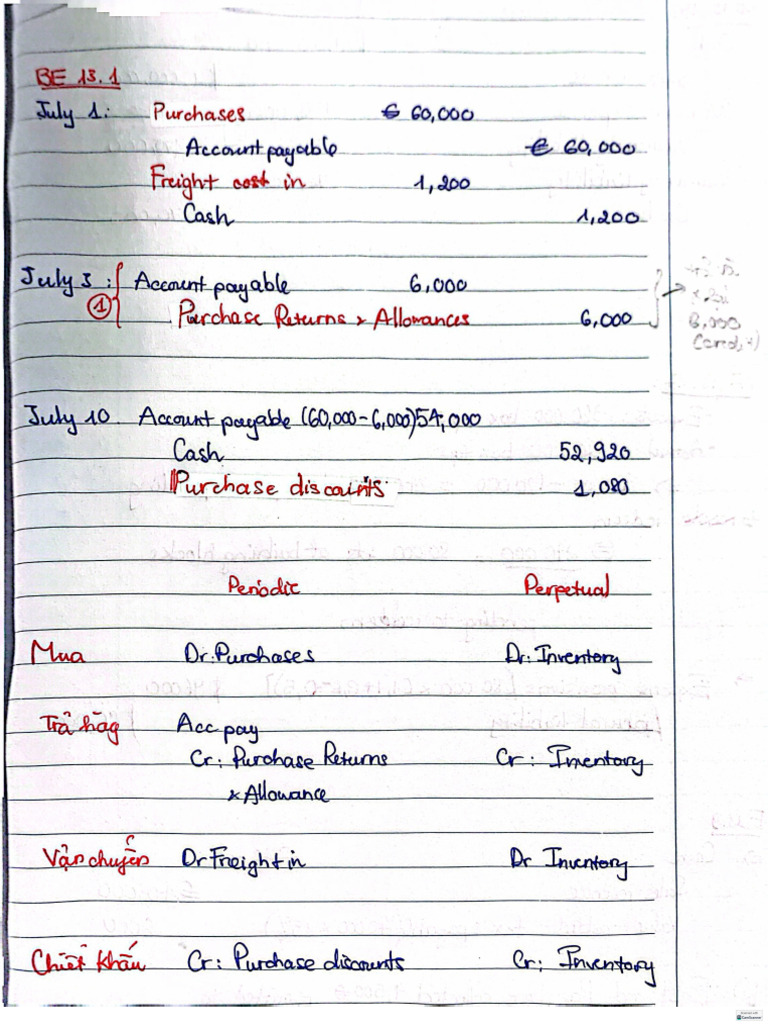 BE 13.1
July 1: Purchases € 60,000
Account payable € 60,000
Freight cost in 1,200
Cash 1,200
July 3: Account payable 6,000
① Purchase Returns & Allowances 6,000
6,000
July 10 Account payable (60,000-6,000) 54,000
Cash 52,920
Purchase discounts 1,080
Periodic Perpetual
Mua Dr: Purchases Dr: Inventory
Trả hàg Acc pay
Cr: Purchase Returns Cr: Inventory
& Allowance
Vận chuyển Dr Freight in Dr Inventory
Chiết khấu Cr: Purchase discounts Cr: Inventory
CamScanner